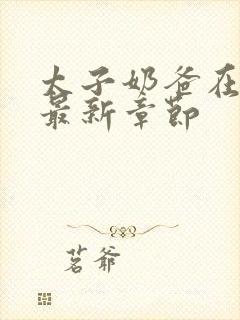 太子奶爸在
最新章節
茗爺